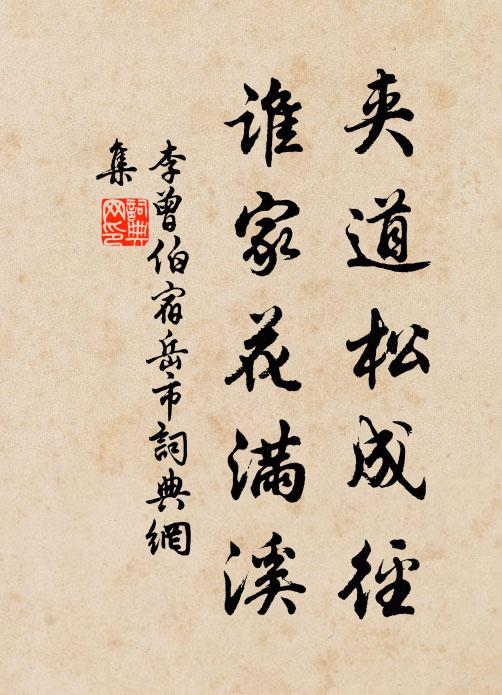 夹道松成径
谁家花满溪
李曾伯宿岳市詞典網
集
詞典网印